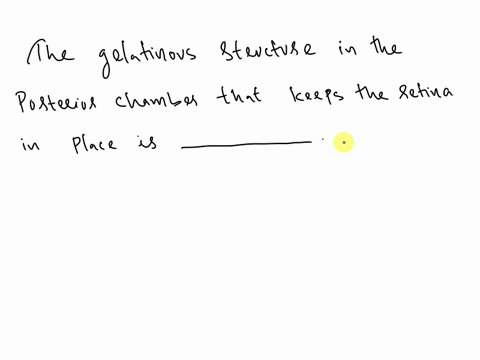 The gelatinous structure in the
Posterior chamber that keeps the retina
in place is ________ .